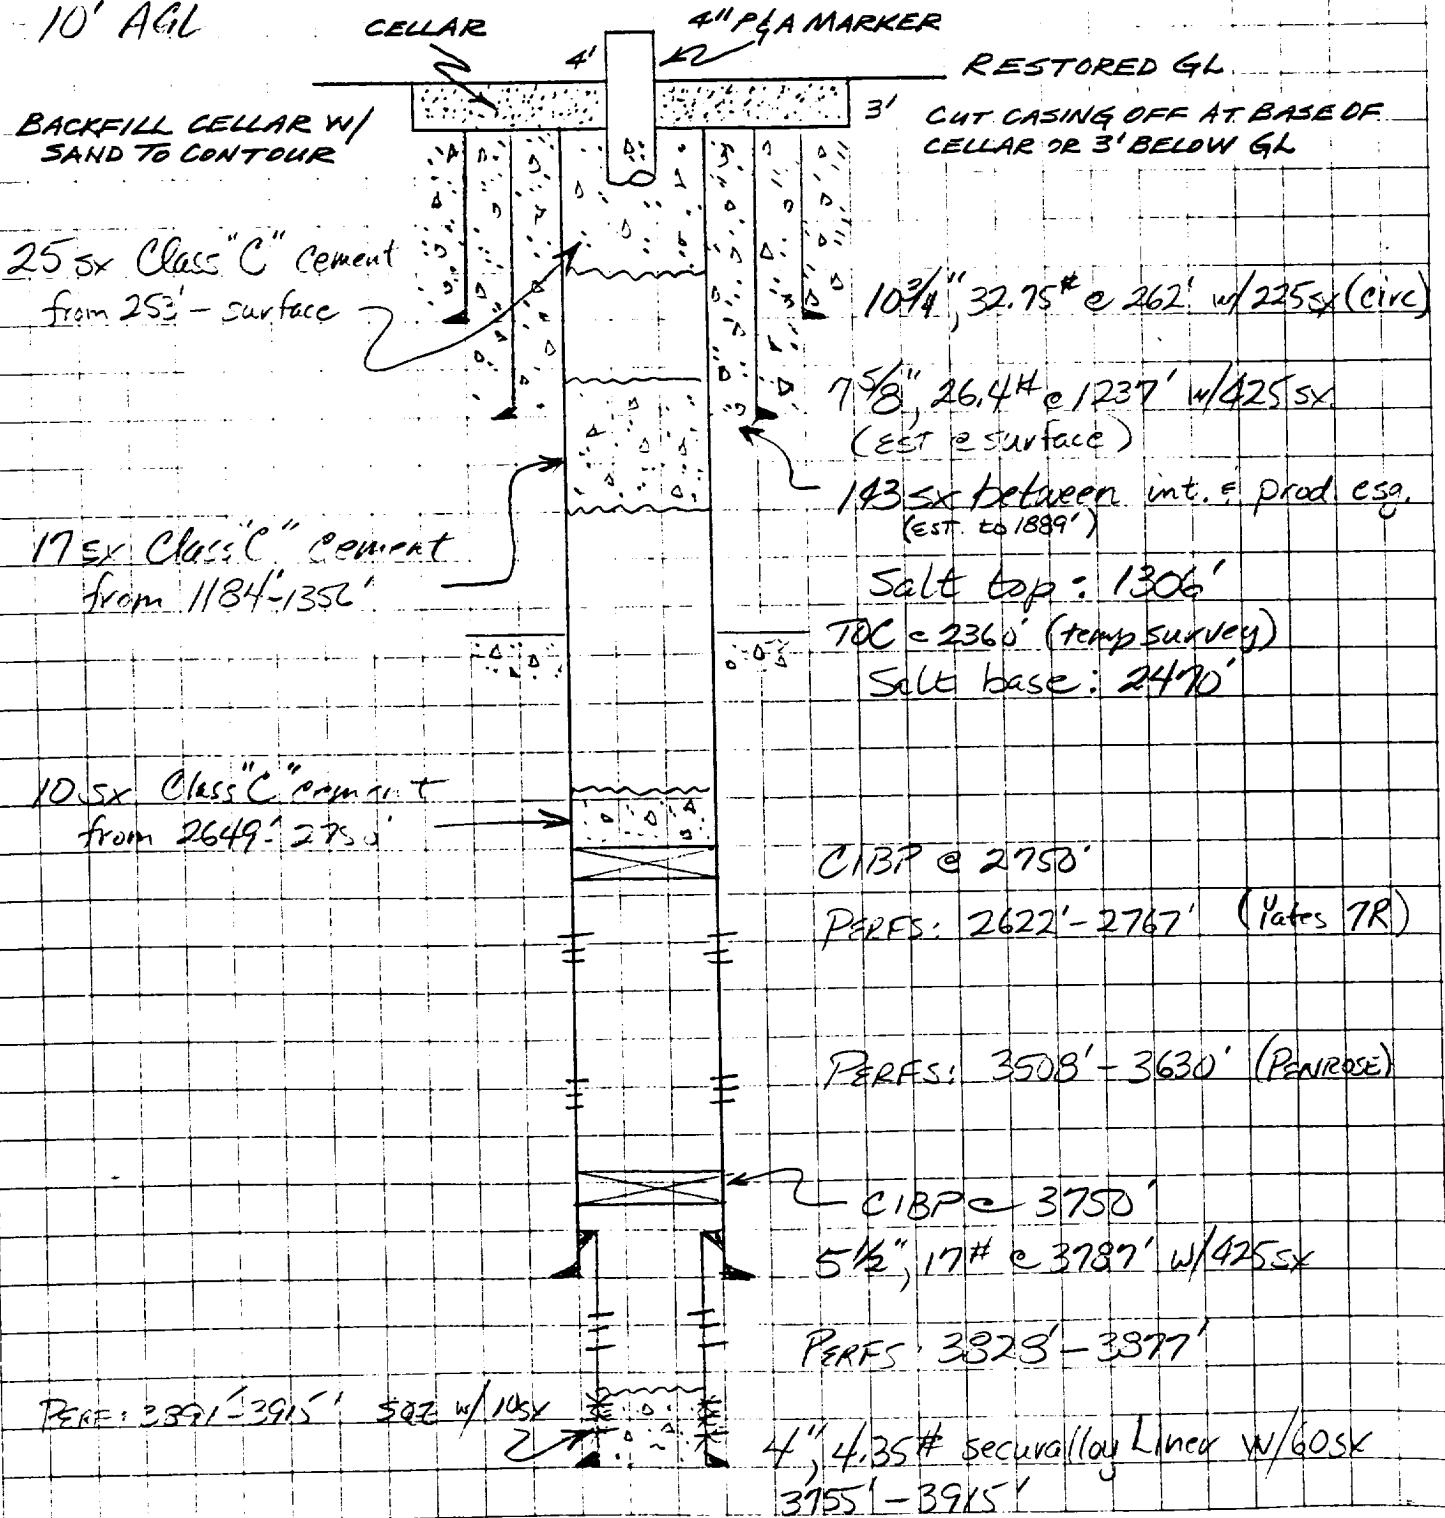 10' AGL
CELLAR
4" P&A MARKER
4'
RESTORED GL
3'
BACKFILL CELLAR W/
SAND TO CONTOUR
CUT CASING OFF AT BASE OF
CELLAR OR 3' BELOW GL
25 sx Class "C" cement
from 253' - surface
10 3/4", 32.75# @ 262' w/225sx (circ)
7 5/8", 26.4# @ 1237' w/425 sx
(EST @ surface)
143 sx between int. & prod. csg.
(EST. to 1889')
17 sx Class "C" cement
from 1184'-1356'
Salt top: 1306'
TOC @ 2360' (temp survey)
Salt base: 2470'
10 sx Class "C" cement
from 2649'-2750'
CIBP @ 2750'
PERFS: 2622'-2767' (Yates 7R)
PERFS: 3508'-3630' (PENROSE)
CIBP @ 3750'
5 1/2", 17# @ 3787' w/425sx
PERFS: 3828'-3877'
PERF: 3891'-3915' SQZ w/ 10sx
4", 4.35# securalloy Liner w/60sx
3755'-3915'